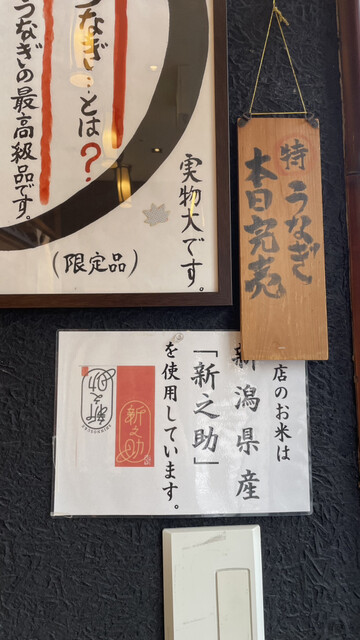 うなぎ…とは?
うなぎの最高級品です。
(限定品)
実物大です。
特
うなぎ
本日完売
店のお米は
新潟県産
「新之助」
を使用しています。
新之助
新之助